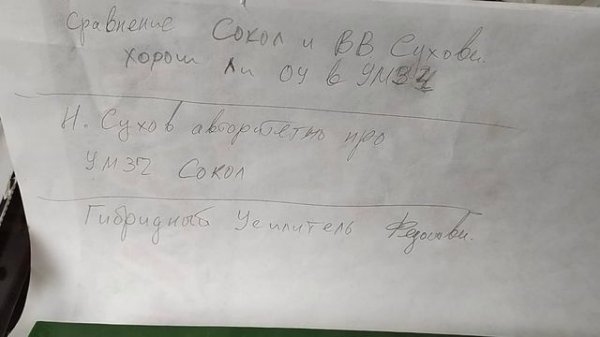 Сравнение Сокол и ВВ Сухови.
хорош ли ОУ в УМЗЧ
Н. Сухов авторитетно про
УМЗЧ Сокол
Гибридный Усилитель